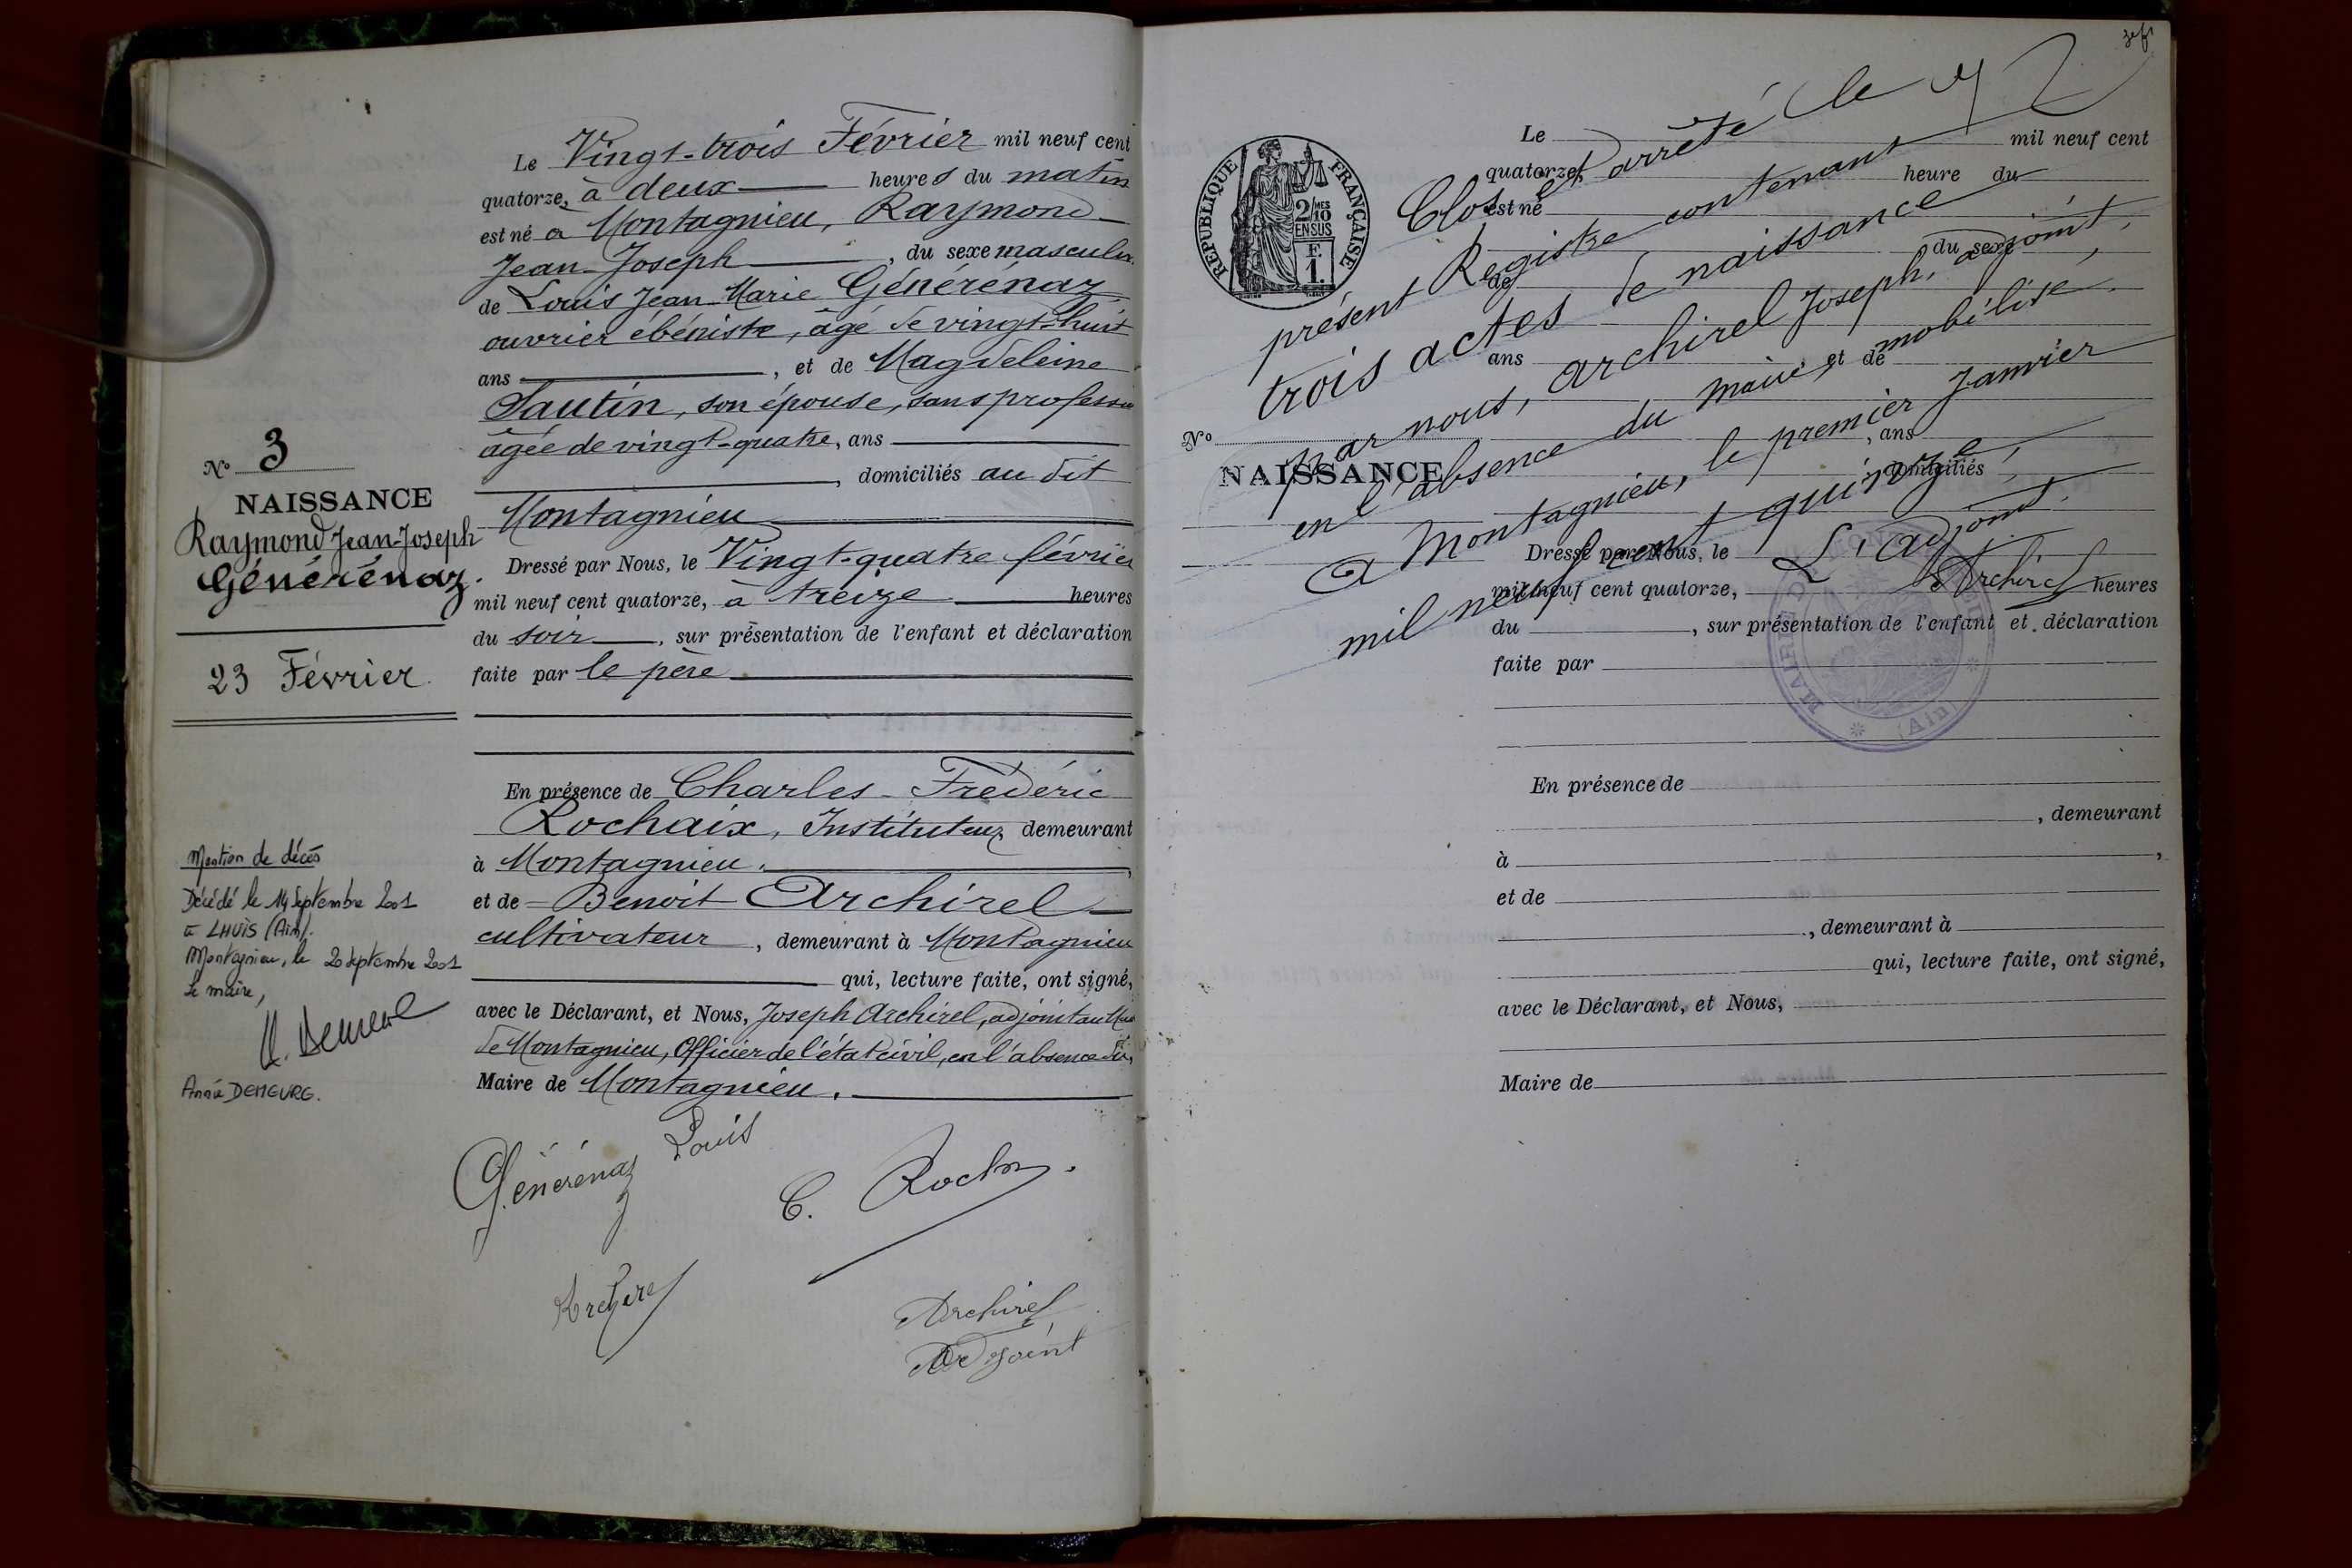 Le Vingt-trois Février mil neuf cent
quatorze, à deux heures du matin
est né à Montagnieu, Raymond
Jean-Joseph, du sexe masculin
de Louis Jean-Marie Générénaz,
ouvrier ébéniste, âgé de vingt-huit
ans, et de Magdeleine
Sautin, son épouse, sans profession
âgée de vingt-quatre, ans
, domiciliés au dit
Montagnieu
Dressé par Nous, le Vingt-quatre février
mil neuf cent quatorze, à treize heures
du soir, sur présentation de l'enfant et déclaration
faite par le père
En présence de Charles-Frédéric
Rochaix, Instituteur, demeurant
à Montagnieu.,
et de Benoit Archirel
cultivateur, demeurant à Montagnieu
qui, lecture faite, ont signé,
avec le Déclarant, et Nous, Joseph Archirel, adjoint au
de Montagnieu, Officier de l'état civil, en l'absence du,
Maire de Montagnieu.
Générénaz Louis
C. Rochaix
Archirel
Archirel
Adjoint
No 3
NAISSANCE
Raymond Jean-Joseph
Générénaz.
23 Février
Mention de décès
Décédé le 14 Septembre 2001
à LHUIS (Ain).
Montagnieu, le 20 septembre 2001
Le maire,
Année DEMEURE.
RÉPUBLIQUE FRANÇAISE
2/10 MES
EN SUS
F.
1.
Le mil neuf cent
quatorze, heure du
est né
du sexe
de
ans et de
, ans
domiciliés
No
NAISSANCE
Clos et arrêté le
présent Registre contenant
trois actes de naissance,
par nous, Archirel Joseph, adjoint,
en l'absence du Maire mobilisé.
A Montagnieu, le premier Janvier
mil neuf cent quinze,
L'adjoint.
Archirel
MAIRIE DE MONTAGNIEU
(Ain)
Dressé par Nous, le
mil neuf cent quatorze, heures
du, sur présentation de l'enfant et déclaration
faite par
En présence de
, demeurant
à,
et de
, demeurant à
qui, lecture faite, ont signé,
avec le Déclarant, et Nous,
Maire de